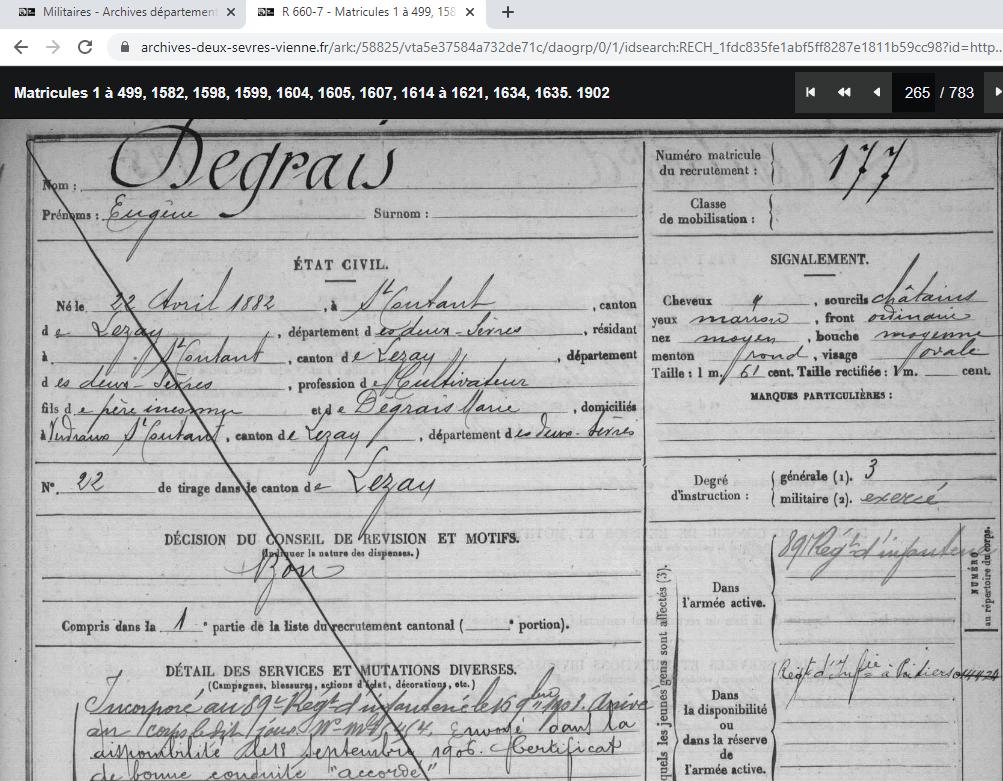 Militaires - Archives départemen
R 660-7 - Matricules 1 à 499, 158
archives-deux-sevres-vienne.fr/ark:/58825/vta5e37584a732de71c/daogrp/0/1/idsearch:RECH_1fdc525fe1abf5ff8287e1811b59cc98?id=http...
Matricules 1 à 499, 1582, 1598, 1599, 1604, 1605, 1607, 1614 à 1621, 1634, 1635. 1902
265 / 783
Nom : Degrais
Prénoms : Eugène Surnom :
Numéro matricule du recrutement : 177
Classe de mobilisation :
ÉTAT CIVIL.
Né le 22 Avril 1882, à St Coutant, canton
de Lezay, département des deux-Sèvres, résidant
à St Coutant, canton de Lezay, département
des deux-Sèvres, profession de Cultivateur
fils de père inconnu et de Degrais Marie, domiciliés
à St Coutant, canton de Lezay, département des deux-Sèvres
N° 22 de tirage dans le canton de Lezay
DÉCISION DU CONSEIL DE RÉVISION ET MOTIFS.
(Indiquer la nature des dispenses.)
Bon
Compris dans la 1e partie de la liste du recrutement cantonal ( e portion).
DÉTAIL DES SERVICES ET MUTATIONS DIVERSES.
(Campagnes, blessures, actions d'éclat, décorations, etc.)
Incorporé au 89e Régt d'infanterie le 9bre Arrivé
au corps le dit jour Envoyé dans la
disponibilité le 18 septembre 1906. Certificat
de bonne conduite "accordé"
SIGNALEMENT.
Cheveux , sourcils châtains
yeux marron, front ordinaire
nez moyen, bouche moyenne
menton rond, visage ovale
Taille : 1 m. 61 cent. Taille rectifiée : 1 m. cent.
MARQUES PARTICULIÈRES :
Degré d'instruction :
générale (1). 3
militaire (2). exercé
89e Régt d'infanterie
Dans l'armée active.
NUMÉRO au répertoire du corps.
Régt d'Infie à Poitiers
Dans la disponibilité ou dans la réserve de l'armée active.
quels les jeunes gens sont affectés (3).